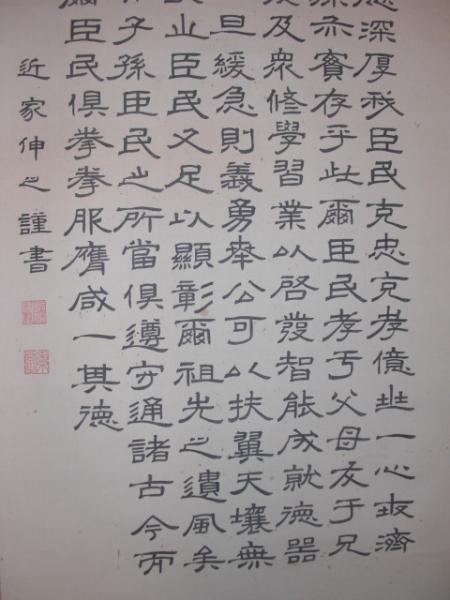 深厚我臣民克忠克孝億兆一心世濟
亦實存乎此爾臣民孝于父母友于兄
及眾修學習業以啓發智能成就德器
旦緩急則義勇奉公可以扶翼天壤無
之臣民又足以顯彰爾祖先之遺風矣
子孫臣民之所當俱遵守通諸古今而
爾臣民俱拳拳服膺咸一其德
近家伸之謹書